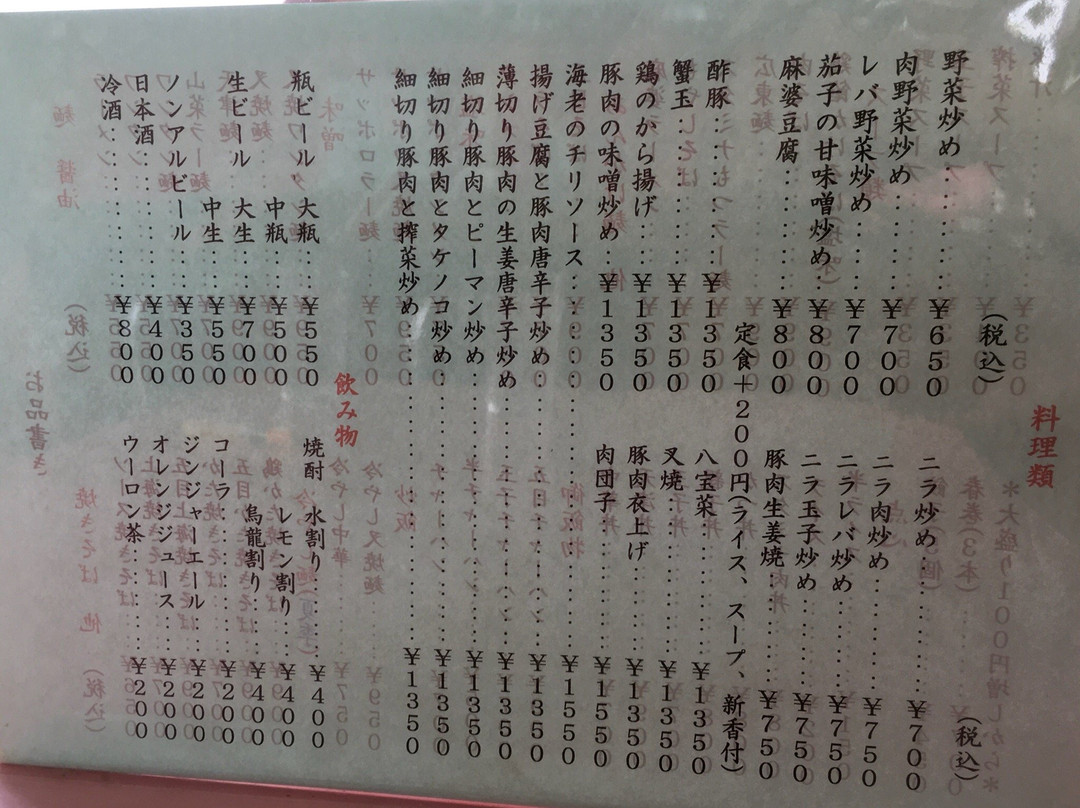 料理類
(税込)
野菜炒め……¥650
肉野菜炒め……¥700
レバ野菜炒め……¥700
茄子の甘味噌炒め…¥800
麻婆豆腐……¥800
ニラ炒め……¥700
(税込)
ニラ肉炒め……¥750
ニラレバ炒め……¥750
ニラ玉子炒め……¥750
豚肉生姜焼……¥750
定食+200円(ライス、スープ、新香付)
酢豚……¥1350
蟹玉……¥1350
鶏のから揚げ……¥1350
豚肉の味噌炒め…¥1350
八宝菜……¥1350
叉焼……¥1350
豚肉衣上げ……¥1350
肉団子……¥1550
海老のチリソース……¥1550
揚げ豆腐と豚肉唐辛子炒め……¥1350
薄切り豚肉の生姜唐辛子炒め……¥1350
細切り豚肉とピーマン炒め……¥1350
細切り豚肉とタケノコ炒め……¥1350
細切り豚肉と搾菜炒め……¥1350
飲み物
瓶ビール 大瓶……¥550
中瓶……¥500
生ビール 大生……¥700
中生……¥550
ノンアルビール……¥350
日本酒……¥400
冷酒……¥800
焼酎 水割り……¥400
レモン割り……¥400
烏龍割り……¥400
コーラ……¥200
ジンジャーエール……¥200
オレンジジュース……¥200
ウーロン茶……¥200